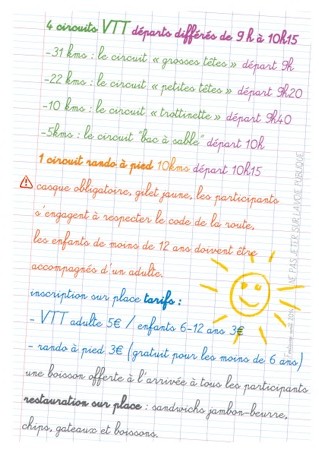 4 circuits VTT départs différés de 9 h à 10h15
-31 kms : le circuit « grosses têtes » départ 9h
-22 kms : le circuit « petites têtes » départ 9h20
-10 kms : le circuit « trottinette » départ 9h40
-5kms : le circuit "bac à sable" départ 10h
1 circuit rando à pied 10kms départ 10h15
casque obligatoire, gilet jaune, les participants
s'engagent à respecter le code de la route,
les enfants de moins de 12 ans doivent être
accompagnés d'un adulte.
inscription sur place tarifs :
- VTT adulte 5€ / enfants 6-12 ans 3€
- rando à pied 3€ (gratuit pour les moins de 6 ans)
une boisson offerte à l'arrivée à tous les participants
restauration sur place : sandwichs jambon-beurre,
chips, gateaux et boissons.
NE PAS JETER SUR LA VOIE PUBLIQUE